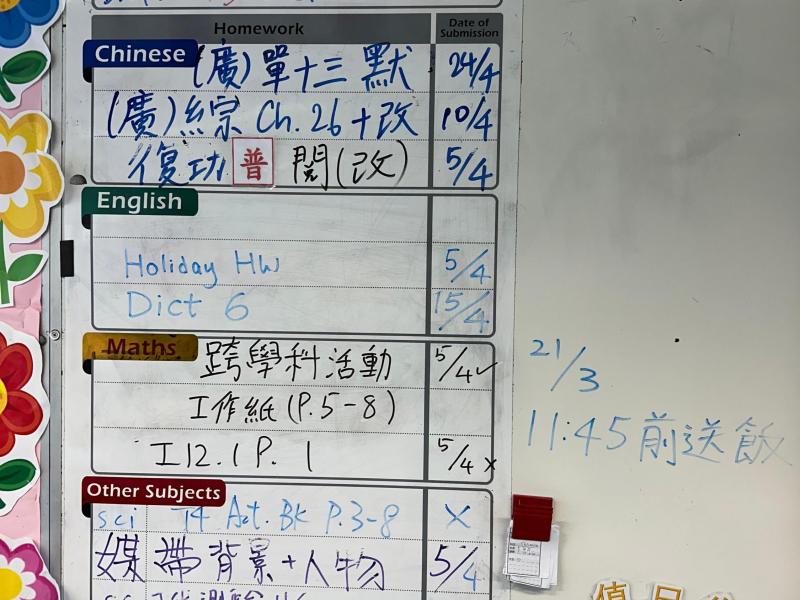 Homework Date of Submission
Chinese (廣) 單十三 默 24/4
(廣) 綜 Ch. 26 + 改 10/4
復功 普 閱 (改) 5/4
English
Holiday HW 5/4
Dict 6 15/4
Maths 跨學科活動 5/4 ✓
工作紙 (P. 5-8)
工12.1 P. 1 5/4 x
Other Subjects
sci T4 Act. BK P.3-8 X
媒 帶背景+人物 5/4
21/3
11:45 前送飯